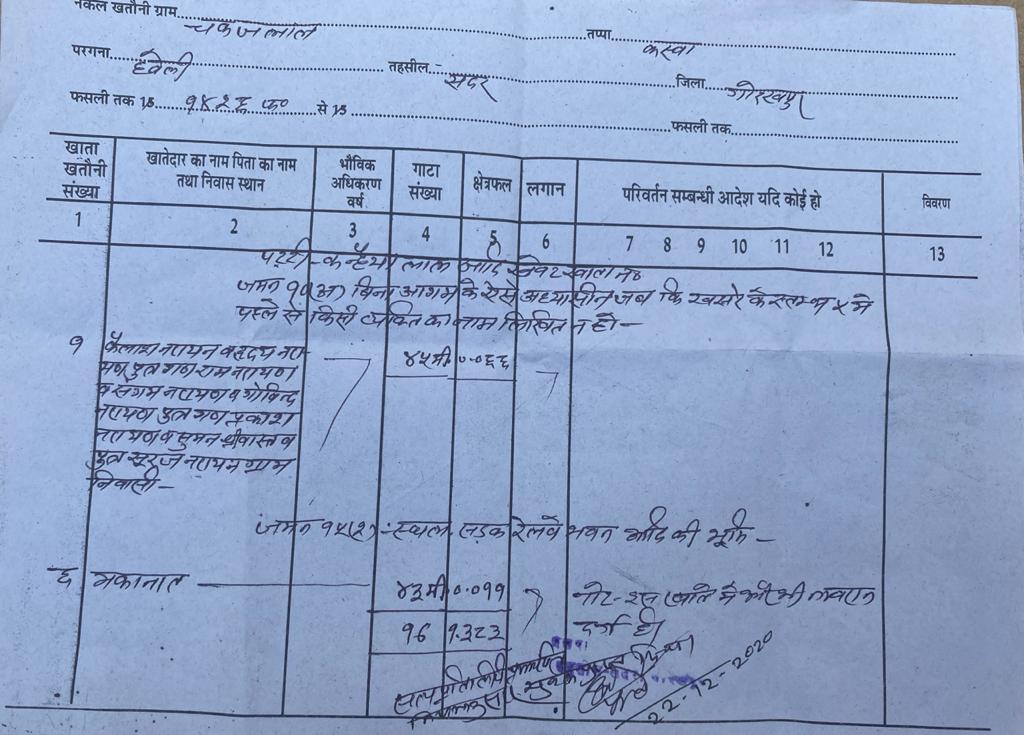 नकल खतौनी ग्राम चकजलाल तप्पा कस्वा
परगना हवेली तहसील सदर जिला गोरखपुर
फसली तक 15 १४२६ फ० से 15 फसली तक
खाता खतौनी संख्या
खातेदार का नाम पिता का नाम तथा निवास स्थान
भौविक अधिकरण वर्ष
गाटा संख्या
क्षेत्रफल
लगान
परिवर्तन सम्बन्धी आदेश यदि कोई हो
विवरण
1 2 3 4 5 6 7 8 9 10 11 12 13
पट्टी - कन्हैया लाल आदि खेवट खाता न०
जमन १०(अ) बिना आगम के ऐसे अध्यासीन जब कि खसरे के स्तम्भ ४ मे
पहले से किसी व्यक्ति का नाम लिखित न हो -
१ कैलाश नरायन व हृदय नरा-
यण पुत्र गण राम नरायण
व संगम नरायण व गोविन्द
नरायण पुत्र गण प्रकाश
नरायण व सुमन श्रीवास्तव
पुत्र सूरज नरायन ग्राम
निवासी -
४५मी ०.०६६
जमन १५(२) :- स्थल सड़क रेलवे भवन आदि की भूमि -
६ मकानात ४३मी ०.०११
नोट - इस खाते मे और भी नम्बरान
दर्ज है।
१६ १.३८३
सत्य प्रतिलिपि प्रमाणित
22-12-2020